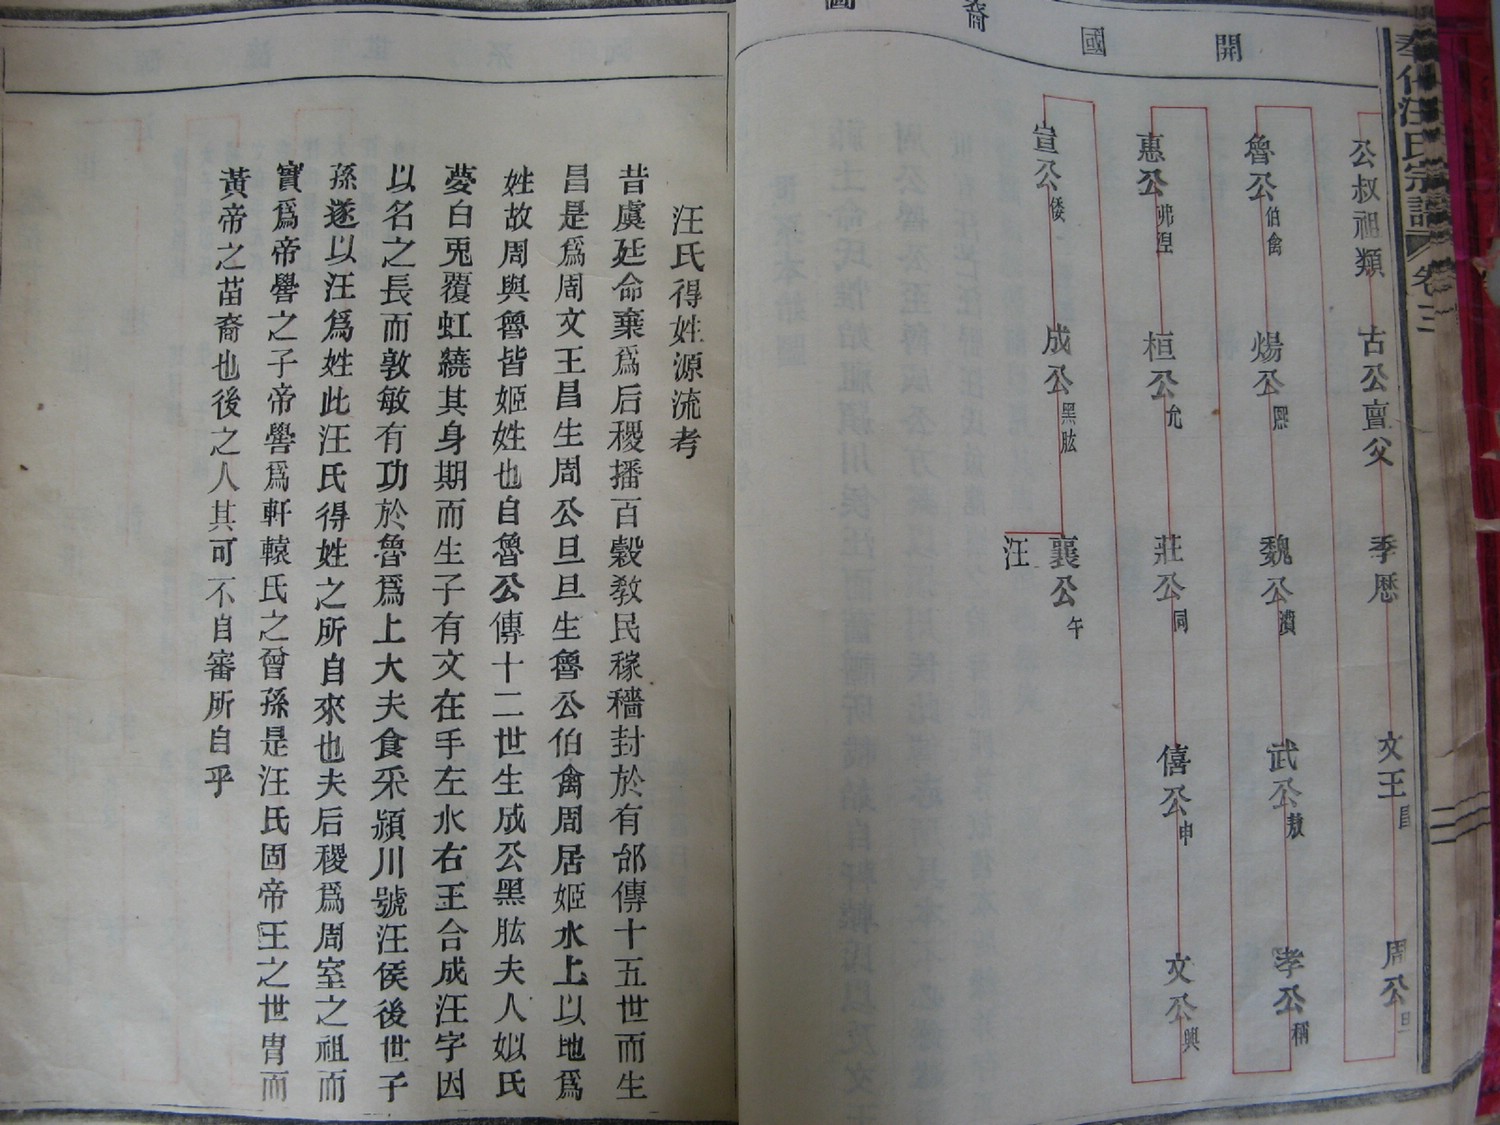 奉化汪氏宗譜 卷三
開國裔圖
公叔祖類 古公亶父 季歷 文王昌 周公旦
魯公伯禽 煬公熙 魏公㵒 武公敖 孝公稱
惠公弗湟 桓公允 莊公同 僖公申 文公興
宣公倭 成公黑肱 襄公午
汪
汪氏得姓源流考
昔虞廷命棄爲后稷播百穀教民稼穡封於有邰傳十五世而生
昌是爲周文王昌生周公旦旦生魯公伯禽周居姬水上以地爲
姓故周與魯皆姬姓也自魯公傳十二世生成公黑肱夫人姒氏
夢白兎覆虹繞其身期而生子有文在手左水右王合成汪字因
以名之長而敦敏有功於魯爲上大夫食采潁川號汪侯後世子
孫遂以汪爲姓此汪氏得姓之所自來也夫后稷爲周室之祖而
實爲帝嚳之子帝嚳爲軒轅氏之曾孫是汪氏固帝王之世冑而
黃帝之苗裔也後之人其可不自審所自乎